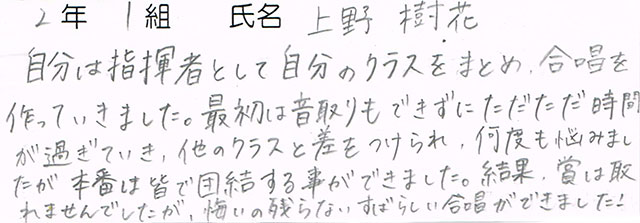 2年 1組 氏名 上野 樹花
自分は指揮者として自分のクラスをまとめ、合唱を
作っていきました。最初は音取りもできずにただただ時間
が過ぎていき、他のクラスと差をつけられ、何度も悩みまし
たが本番は皆で団結する事ができました。結果、賞は取
れませんでしたが、悔いの残らないすばらしい合唱ができました!